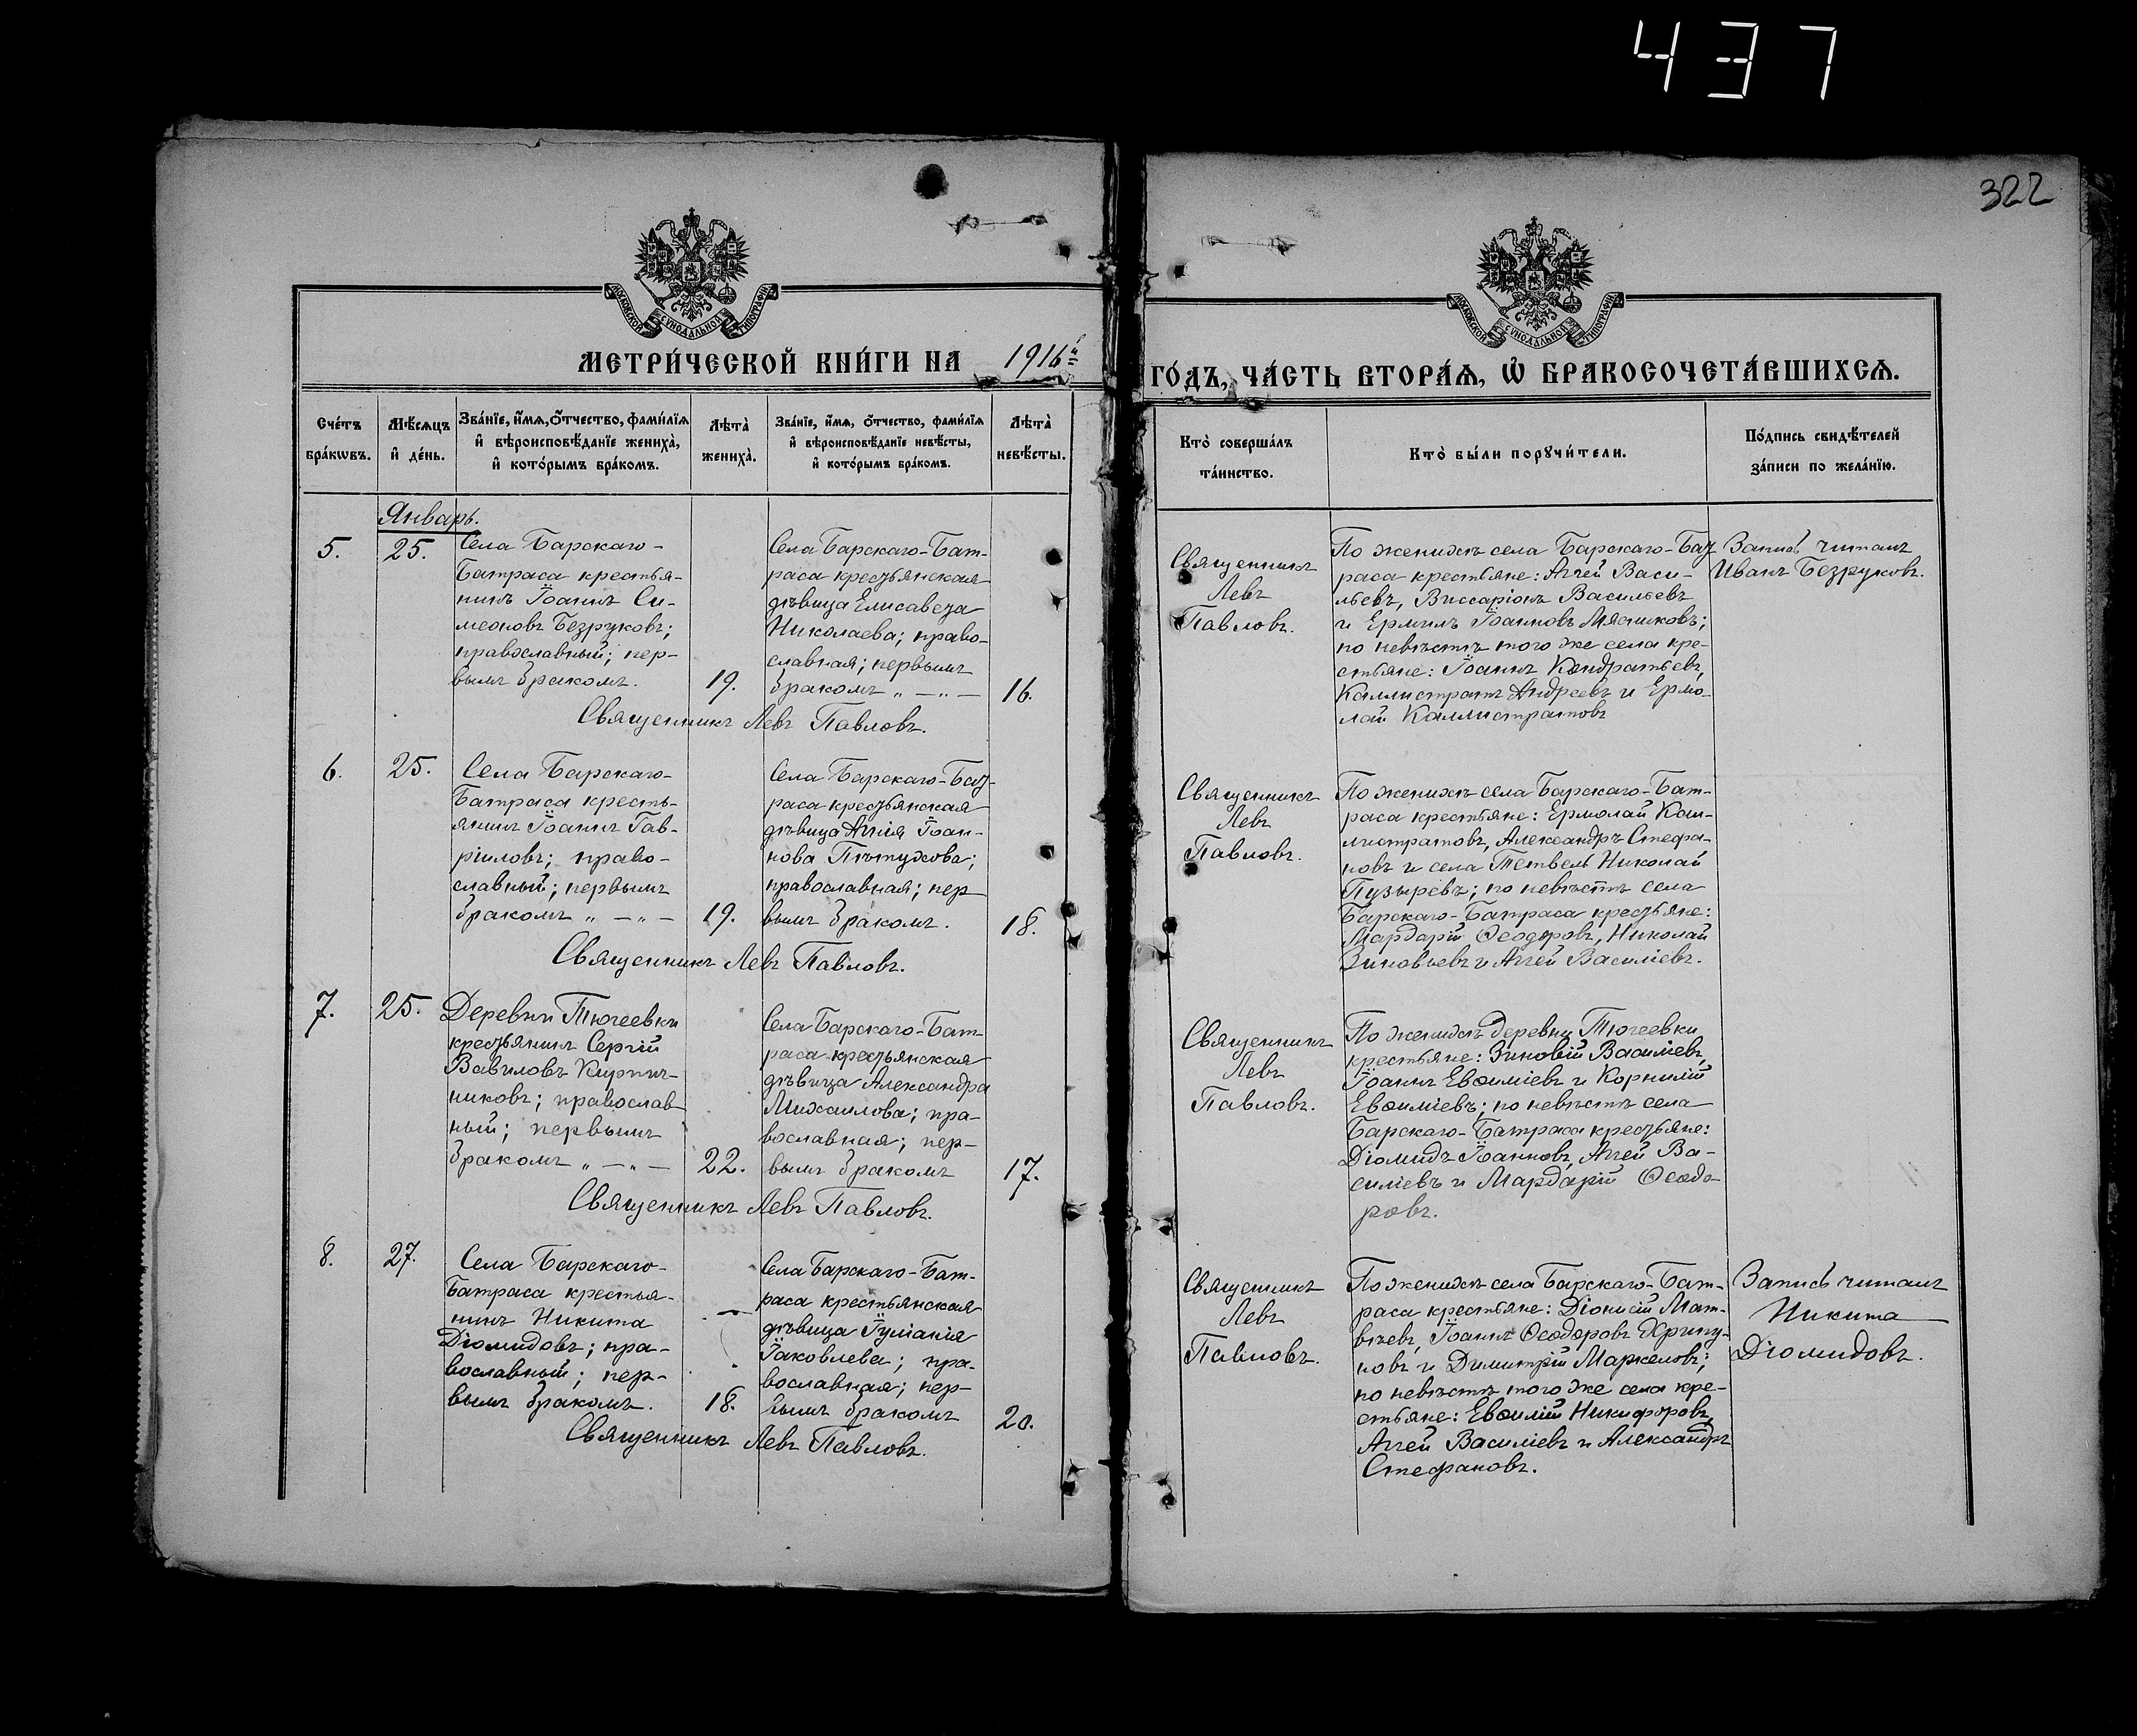 437
322
МОСКОВСКОЙ СѴНОДАЛЬНОЙ ТИПОГРАФІИ
МОСКОВСКОЙ СѴНОДАЛЬНОЙ ТИПОГРАФІИ
МЕТРИ́ЧЕСКОЙ КНИ́ГИ НА 1916й ГО́ДЪ, ЧА́СТЬ ВТОРА́Ѧ, Ѡ҆ БРАКОСОЧЕТА́ВШИХСѦ.
Сче́тъ бра́кѡвъ.
Мѣ́сѧцъ и҆ де́нь.
Зва́нїе, и҆́мѧ, ѻ҆́тчество, фами́лїѧ и҆ вѣроисповѣ́данїе жениха̀, и҆ кото́рымъ бра́комъ.
Лѣ̑та̀ жениха̀.
Зва́нїе, и҆́мѧ, ѻ҆́тчество, фами́лїѧ и҆ вѣроисповѣ́данїе невѣ́сты, и҆ кото́рымъ бра́комъ.
Лѣ̑та̀ невѣ́сты.
Кто̀ соверша́лъ та́инство.
Кто̀ бы́ли порꙋчи́тели.
По́дпись свидѣ́телей за́писи по жела́нїю.
Январь.
5.
25.
Села Барскаго-
Батраса крестья-
нинъ Іоаннъ Си-
меоновъ Безруковъ;
православный; пер-
вымъ бракомъ.
19.
Села Барскаго-Бат-
раса крестьянская
дѣвица Елисавета
Николаева; право-
славная; первымъ
бракомъ „ — „ —
16.
Священникъ Левъ Павловъ.
Священникъ
Левъ
Павловъ.
По женихѣ села Барскаго-Бат-
раса крестьяне: Аггей Васи-
льевъ, Виссаріонъ Васильевъ
и Ермилъ Іоанновъ Мясниковъ;
по невѣстѣ того же села кре-
стьяне: Іоаннъ Кондратьевъ,
Каллистратъ Андреевъ и Ермо-
лай Каллистратовъ
Запись читалъ
Иванъ Безруковъ.
6.
25.
Села Барскаго-
Батраса кресть-
янинъ Іоаннъ Гав-
ріиловъ; право-
славный; первымъ
бракомъ „ — „ —
19.
Села Барскаго-Бат-
раса крестьянская
дѣвица Агнія Іоан-
нова Пѣтухова;
православная; пер-
вымъ бракомъ.
18.
Священникъ Левъ Павловъ.
Священникъ
Левъ
Павловъ.
По женихѣ села Барскаго-Бат-
раса крестьяне: Ермолай Кал-
листратовъ, Александръ Стефа-
новъ и села Тетвель Николай
Пузыревъ; по невѣстѣ села
Барскаго-Батраса крестьяне:
Мардарій Ѳеодоровъ, Николай
Зиновьевъ и Аггей Василіевъ.
7.
25.
Деревни Тюгеевки
крестьянинъ Сергій
Вавиловъ Кирпич-
никовъ; православ-
ный; первымъ
бракомъ „ — „ —
22.
Села Барскаго-Бат-
раса крестьянская
дѣвица Александра
Михаилова; пра-
вославная; пер-
вымъ бракомъ
17.
Священникъ Левъ Павловъ.
Священникъ
Левъ
Павловъ.
По женихѣ деревни Тюгеевки
крестьяне: Зиновій Василіевъ,
Іоаннъ Евѳиміевъ и Корнилій
Евѳиміевъ; по невѣстѣ села
Барскаго-Батраса крестьяне:
Діомидъ Іоанновъ, Аггей Ва-
силіевъ и Мардарій Ѳеодо-
ровъ.
8.
27.
Села Барскаго-
Батраса крестья-
нинъ Никита
Діомидовъ; пра-
вославный; пер-
вымъ бракомъ.
18.
Села Барскаго-Бат-
раса крестьянская
дѣвица Іуліанія
Іаковлева; пра-
вославная; пер-
вымъ бракомъ
20.
Священникъ Левъ Павловъ.
Священникъ
Левъ
Павловъ.
По женихѣ села Барскаго-Бат-
раса крестьяне: Діонисій Мат-
вѣевъ, Іоаннъ Ѳеодоровъ Хрипу-
новъ и Димитрій Маркеловъ;
по невѣстѣ того же села кре-
стьяне: Евѳимій Никифоровъ,
Аггей Василіевъ и Александръ
Стефановъ.
Запись читалъ
Никита
Діомидовъ.